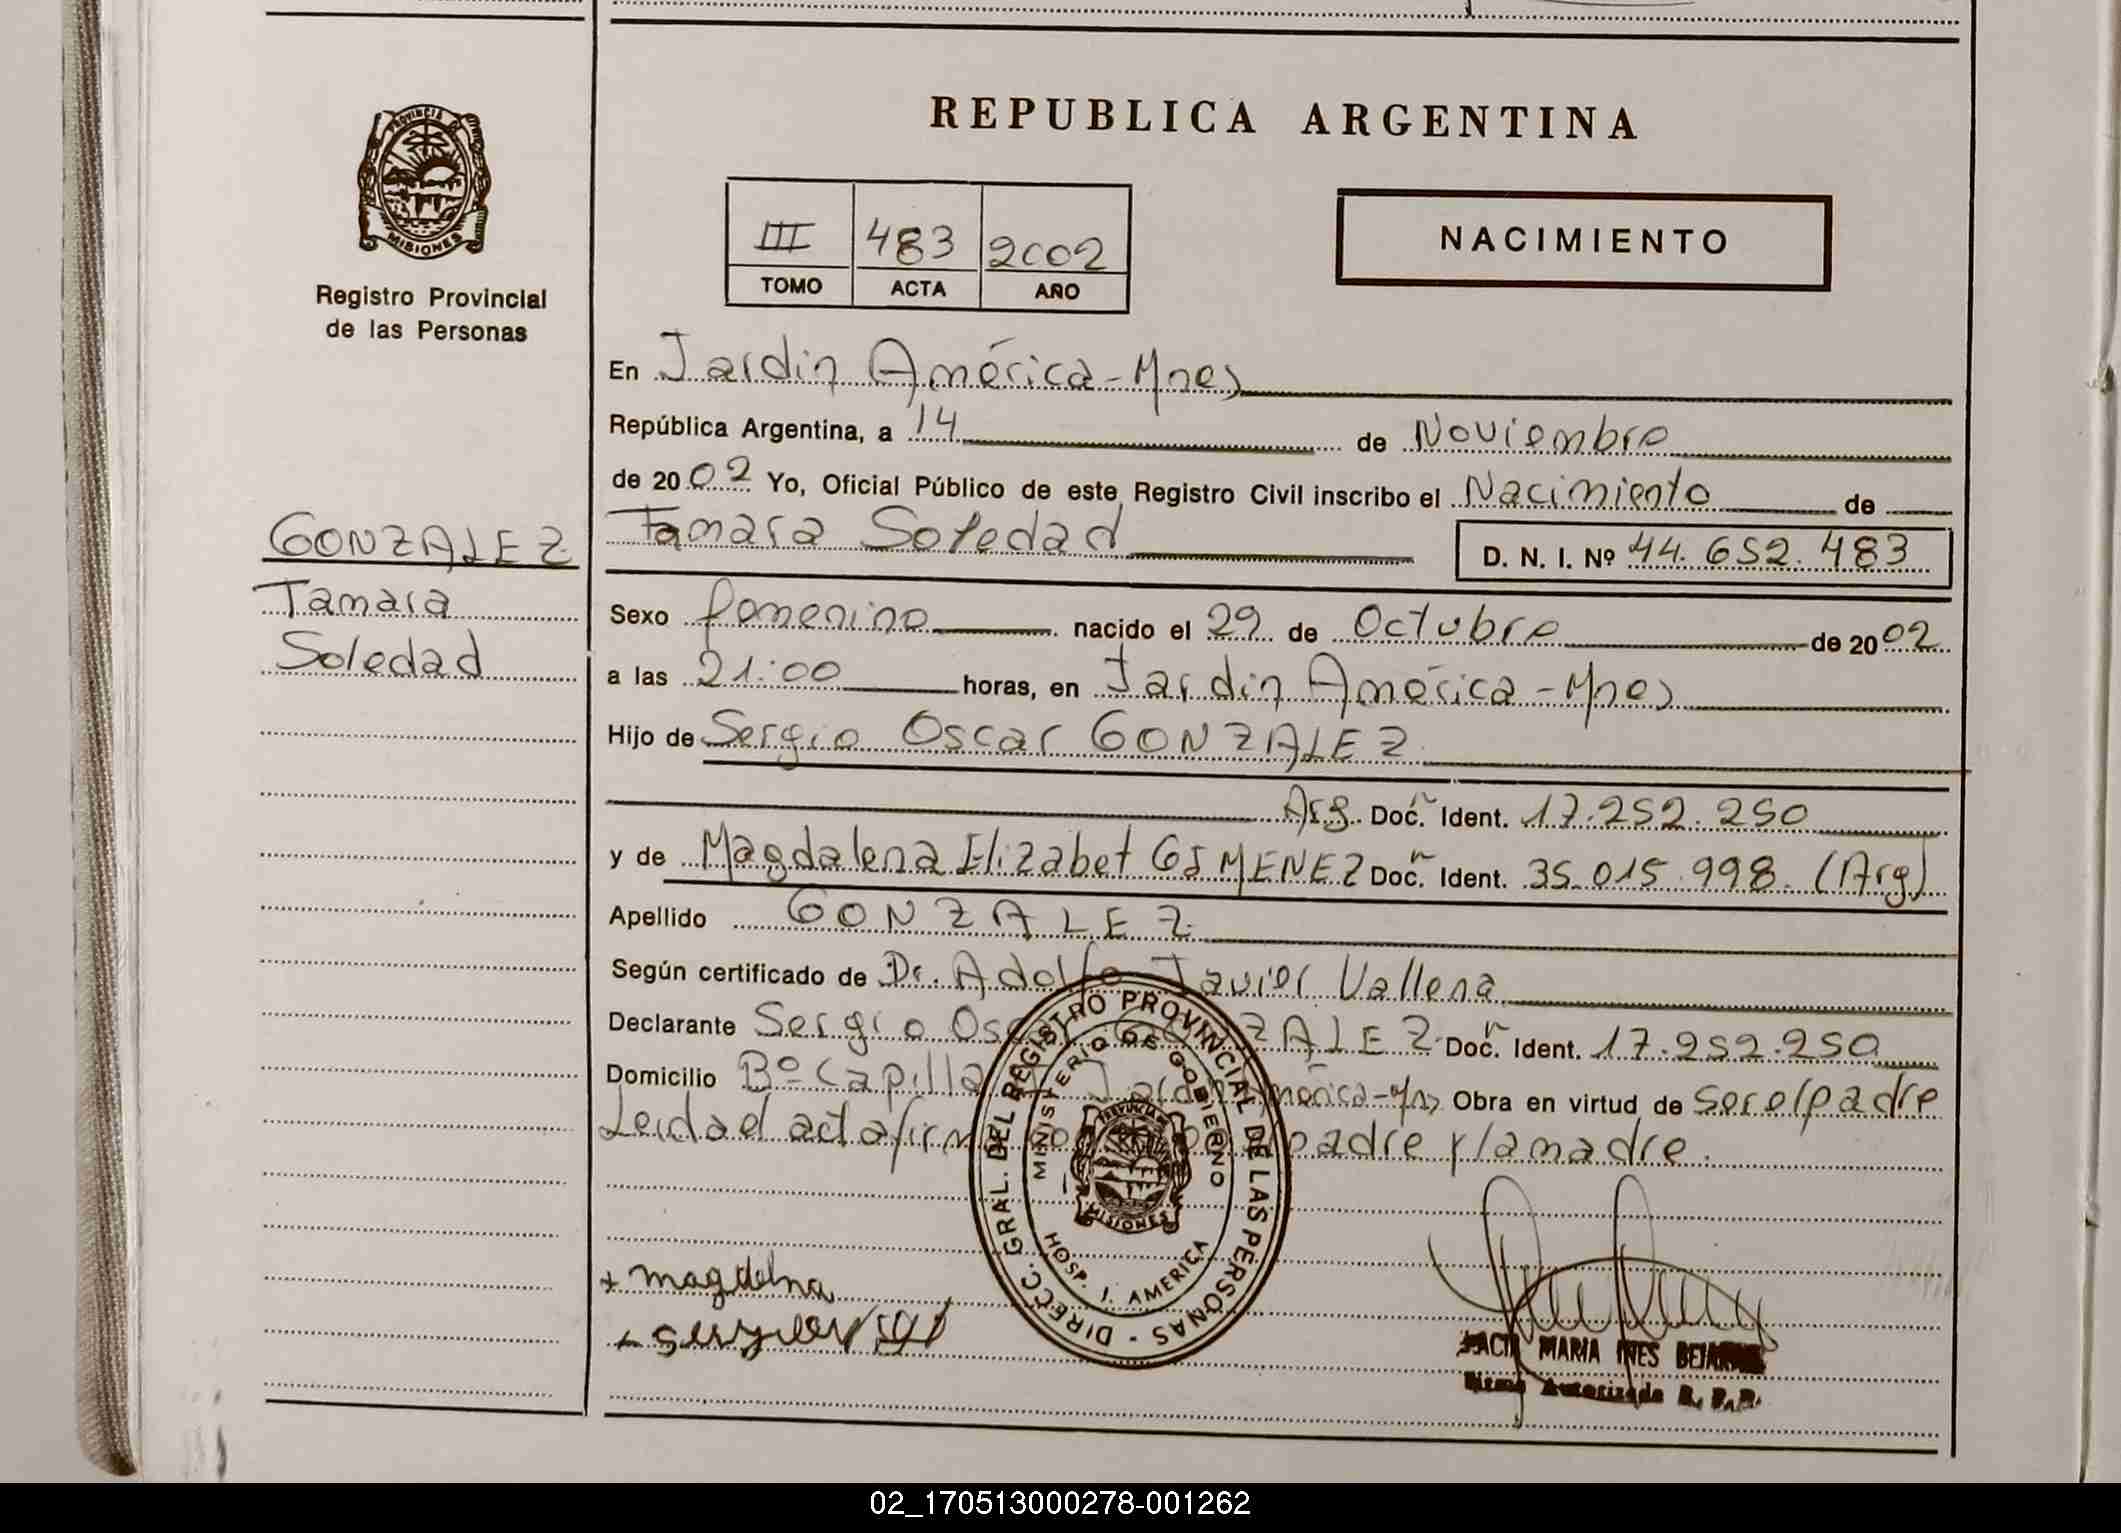 REPUBLICA ARGENTINA
PROVINCIA DE MISIONES
Registro Provincial
de las Personas
III 483 2002
TOMO ACTA AÑO
NACIMIENTO
En Jardin América-Mnes
República Argentina, a 14 de Noviembre
de 2002 Yo, Oficial Público de este Registro Civil inscribo el Nacimiento de
GONZALEZ
Tamara
Soledad
Tamara Soledad D. N. I. Nº 44.652.483
Sexo femenino nacido el 29 de Octubre de 2002
a las 21:00 horas, en Jardin América-Mnes
Hijo de Sergio Oscar GONZALEZ
Arg. Doc. Ident. 17.252.250
y de Magdalena Elizabet GIMENEZ Doc. Ident. 35.015.998. (Arg)
Apellido GONZALEZ
Según certificado de Dr. Adolfo Javier Vallena
Declarante Sergio Oscar GONZALEZ Doc. Ident. 17.252.250
Domicilio Bº Capilla Jardin América-Mns Obra en virtud de ser el padre
Leida el acta firma padre y la madre.
DIRECC. GRAL. DEL REGISTRO PROVINCIAL DE LAS PERSONAS -
MINISTERIO DE GOBIERNO
PROVINCIA MISIONES
HOSP. J. AMERICA
+ magdelna
MARIA INES
Firma Autorizada R. P. P.
02_170513000278-001262